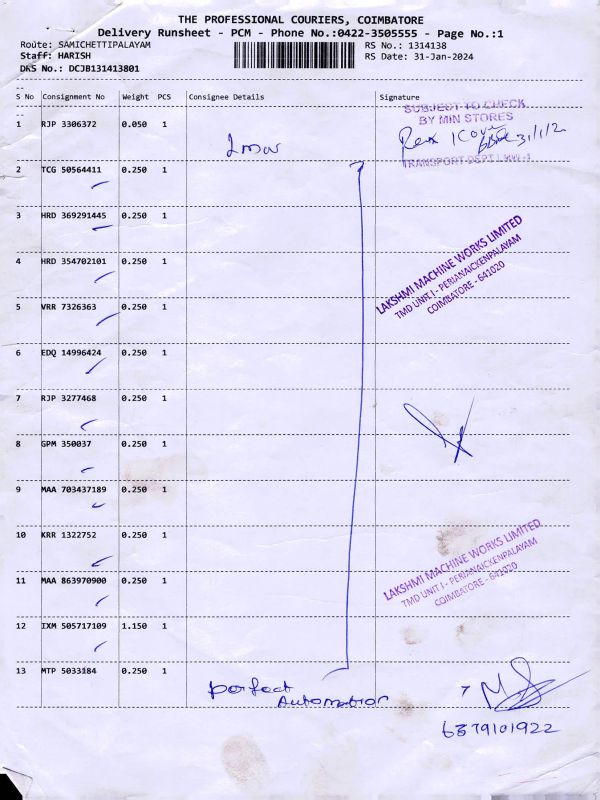 THE PROFESSIONAL COURIERS, COIMBATORE
Delivery Runsheet - PCM - Phone No.:0422-3505555 - Page No.:1
Route: SAMICHETTIPALAYAM RS No.: 1314138
Staff: HARISH RS Date: 31-Jan-2024
DRS No.: DCJB131413801
S No Consignment No Weight PCS Consignee Details Signature
1 RJP 3306372 0.050 1
SUBJECT TO CHECK
BY MIN STORES
31/1/2
TRANSPORT DEPT
2 TCG 50564411 0.250 1
3 HRD 369291445 0.250 1
LAKSHMI MACHINE WORKS LIMITED
TMD UNIT I - PERIANAICKENPALAYAM
COIMBATORE - 641020
4 HRD 354702101 0.250 1
5 VRR 7326363 0.250 1
6 EDQ 14996424 0.250 1
7 RJP 3277468 0.250 1
8 GPM 350037 0.250 1
9 MAA 703437189 0.250 1
10 KRR 1322752 0.250 1
LAKSHMI MACHINE WORKS LIMITED
TMD UNIT I - PERIANAICKENPALAYAM
COIMBATORE - 641020
11 MAA 863970900 0.250 1
12 IXM 505717109 1.150 1
13 MTP 5033184 0.250 1
perfect
Automation
6379101922